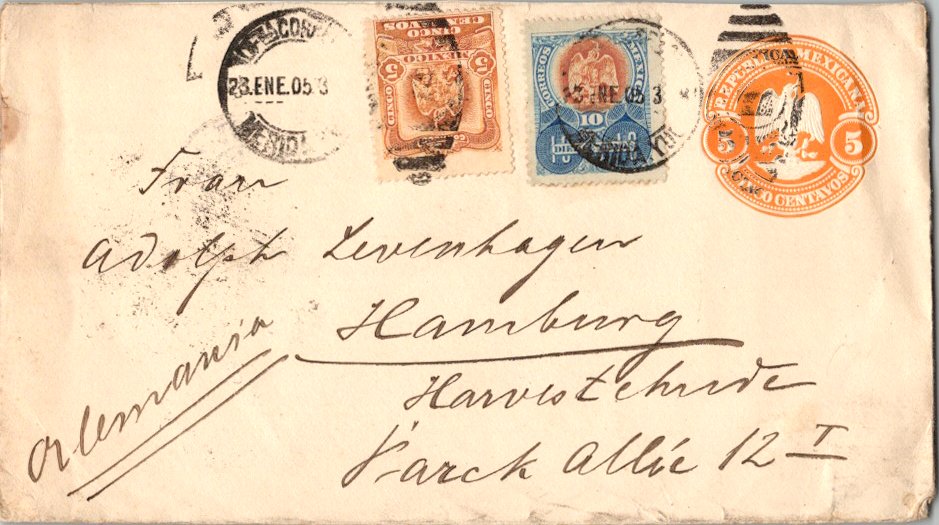 23.ENE.05.3
CINCO CENTAVOS
MEXICO
5 5
CINCO CINCO
CORREOS MEXICO
10
23.ENE.05 3
REPUBLICA MEXICANA
5 5
CINCO CENTAVOS
Frau
Adolph Levenhagen
Hamburg
Harvestehude
Parck Allée 12 I
Alemania